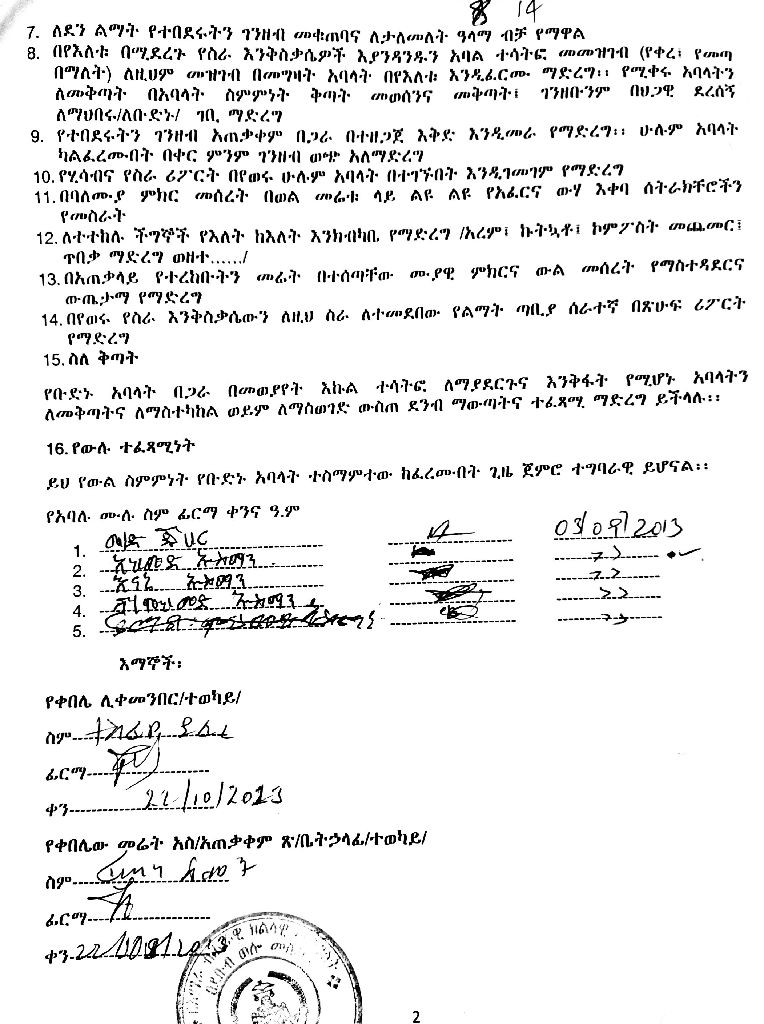 8 14
7. ለደን ልማት የተበደሩትን ገንዘብ መቁጠባና ለታለመለት ዓላማ ብቻ የማዋል
8. በየእለቱ በሚደረጉ የስራ እንቅስቃሴዎች እያንዳንዱን አባል ተሳትፎ መመዝገብ (የቀረ፣ የመጣ
በማለት) ለዚህም መዝገብ በመግዛት አባላት በየእለቱ እንዲፈርሙ ማድረግ፡፡ የሚቀሩ አባላትን
ለመቅጣት በአባላት ስምምነት ቅጣት መወሰንና መቅጣት፤ ገንዘቡንም በህጋዊ ደረሰኝ
ለማህበሩ/ለቡድኑ/ ገቢ ማድረግ
9. የተበደሩትን ገንዘብ አጠቃቀም በጋራ በተዘጋጀ እቅድ እንዲመራ የማድረግ፡፡ ሁሉም አባላት
ካልፈረሙበት በቀር ምንም ገንዘብ ወጭ አለማድረግ
10. የሂሳብና የስራ ሪፖርት በየወሩ ሁሉም አባላት በተገኙበት እንዲገመገም የማድረግ
11. በባለሙያ ምክር መሰረት በወል መሬቱ ላይ ልዩ ልዩ የአፈርና ውሃ እቀባ ስትራክቸሮችን
የመስራት
12. ለተተከሉ ችግኞች የእለት ከእለት እንክብካቤ የማድረግ /አረም፤ ኩትኳቶ፤ ኮምፖስት መጨመር፤
ጥበቃ ማድረግ ወዘተ....../
13. በአጠቃላይ የተረከቡትን መሬት በተሰጣቸው ሙያዊ ምክርና ውል መሰረት የማስተዳደርና
ውጤታማ የማድረግ
14. በየወሩ የስራ እንቅስቃሴውን ለዚህ ስራ ለተመደበው የልማት ጣቢያ ሰራተኛ በጽሁፍ ሪፖርት
የማድረግ
15. ስለ ቅጣት
የቡድኑ አባላት በጋራ በመወያየት እኩል ተሳትፎ ለማያደርጉና እንቅፋት የሚሆኑ አባላትን
ለመቅጣትና ለማስተካከል ወይም ለማስወገድ ውስጠ ደንብ ማውጣትና ተፈጻሚ ማድረግ ይችላሉ፡፡
16. የውሉ ተፈጻሚነት
ይህ የውል ስምምነት የቡድኑ አባላት ተስማምተው ከፈረሙበት ጊዜ ጀምሮ ተግባራዊ ይሆናል፡፡
የአባሉ ሙሉ ስም ፊርማ ቀንና ዓ.ም
1.
2. አህመድ ኡስማን
3. ኡስማን
4. ኡስማን
5.
እማኞች፡
የቀበሌ ሊቀመንበር/ተወካይ/
ስም
ፊርማ
ቀን 22/10/2013
የቀበሌው መሬት አስ/አጠቃቀም ጽ/ቤትኃላፊ/ተወካይ/
ስም
ፊርማ
ቀን
2